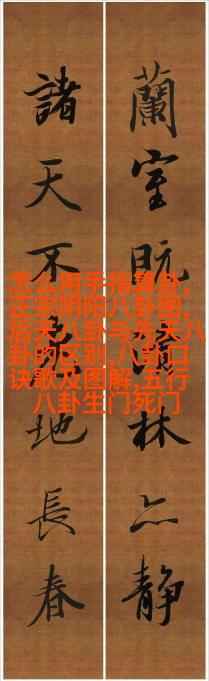 蘭室既林亦静
諸天不地長春
怎么用手指算卦,
正宗阴阳八卦图,
后天八卦与先天八
卦的区别,八卦口
诀歌及图解,五行
八卦生门死门